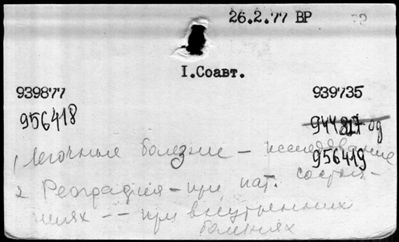 26.2.77 ВР
I.Соавт.
939877 939735
956418 944827 од
956419
1, Легочные болезни – исследование
2 Реография – при пат. состоя-
ниях -- при внутренних
болезнях